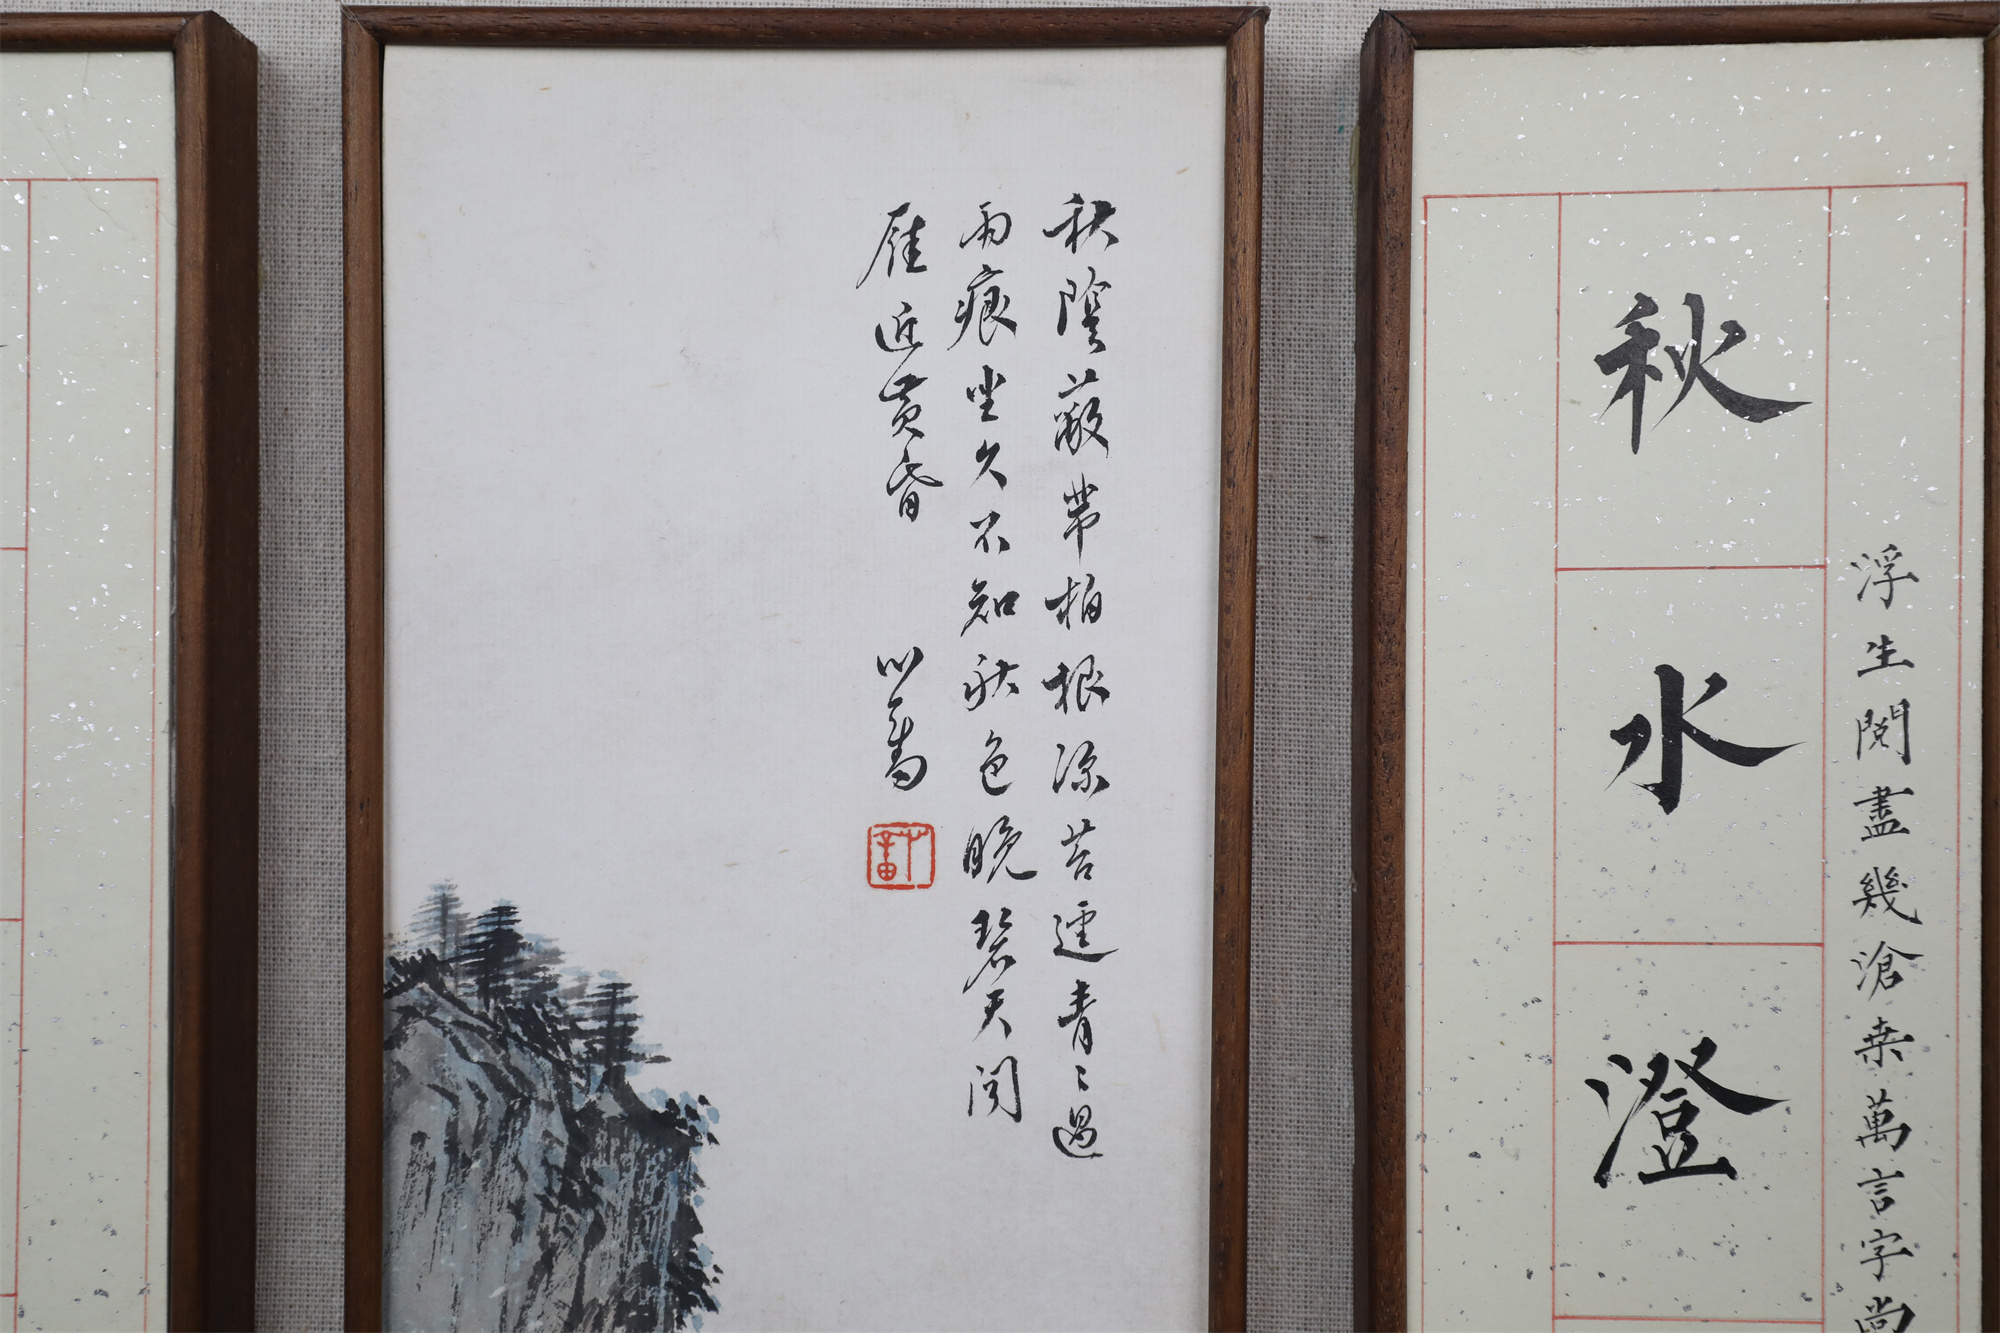 浮生閱盡幾滄桑萬言字
秋水澄
秋陰蔽芾柏根深苔逕青〻過
雨痕坐久不知秋色晚碧天聞
雁近黃昏
心畬